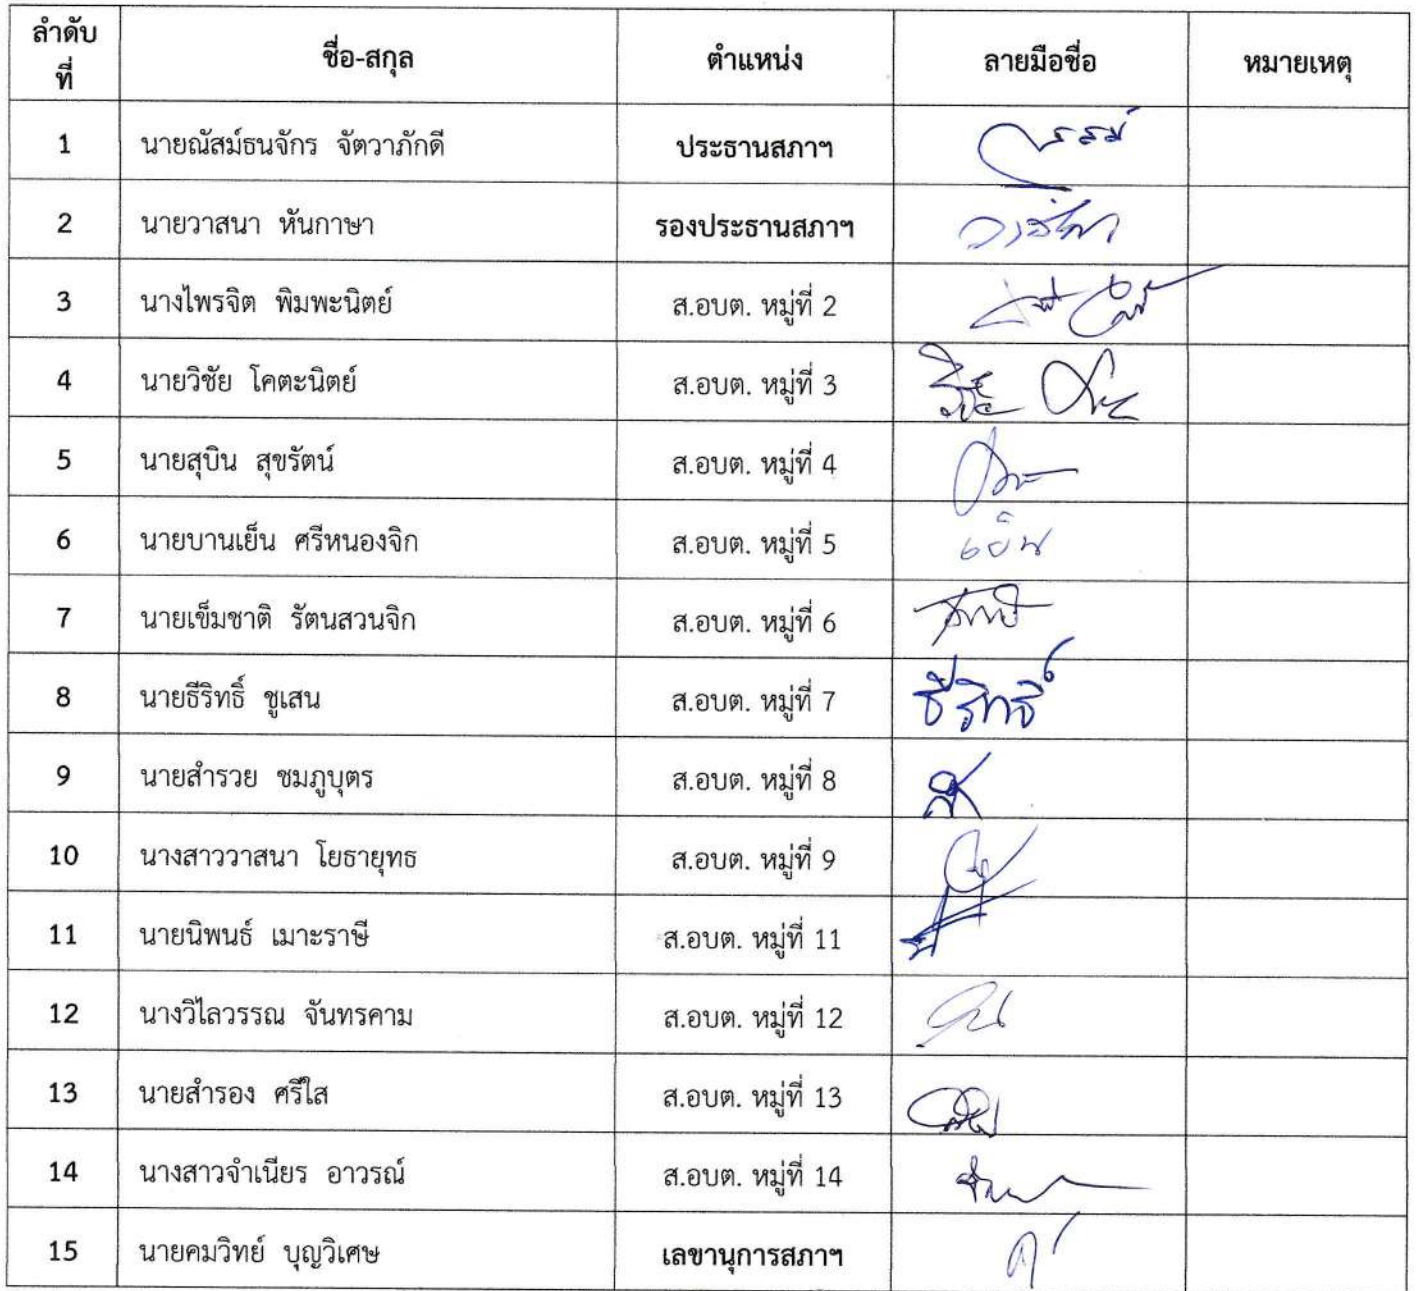 ลำดับที่ ชื่อ-สกุล ตำแหน่ง ลายมือชื่อ หมายเหตุ
1 นายณัสม์ธนจักร จัตวาภักดี ประธานสภาฯ
2 นายวาสนา หันกาษา รองประธานสภาฯ วาสนา
3 นางไพรจิต พิมพะนิตย์ ส.อบต. หมู่ที่ 2
4 นายวิชัย โคตะนิตย์ ส.อบต. หมู่ที่ 3
5 นายสุบิน สุขรัตน์ ส.อบต. หมู่ที่ 4
6 นายบานเย็น ศรีหนองจิก ส.อบต. หมู่ที่ 5 เย็น
7 นายเข็มชาติ รัตนสวนจิก ส.อบต. หมู่ที่ 6
8 นายธีริทธิ์ ชูเสน ส.อบต. หมู่ที่ 7 ธีริทธิ์
9 นายสำรวย ชมภูบุตร ส.อบต. หมู่ที่ 8
10 นางสาววาสนา โยธายุทธ ส.อบต. หมู่ที่ 9
11 นายนิพนธ์ เมาะราษี ส.อบต. หมู่ที่ 11
12 นางวิไลวรรณ จันทรคาม ส.อบต. หมู่ที่ 12
13 นายสำรอง ศรีใส ส.อบต. หมู่ที่ 13
14 นางสาวจำเนียร อาวรณ์ ส.อบต. หมู่ที่ 14
15 นายคมวิทย์ บุญวิเศษ เลขานุการสภาฯ